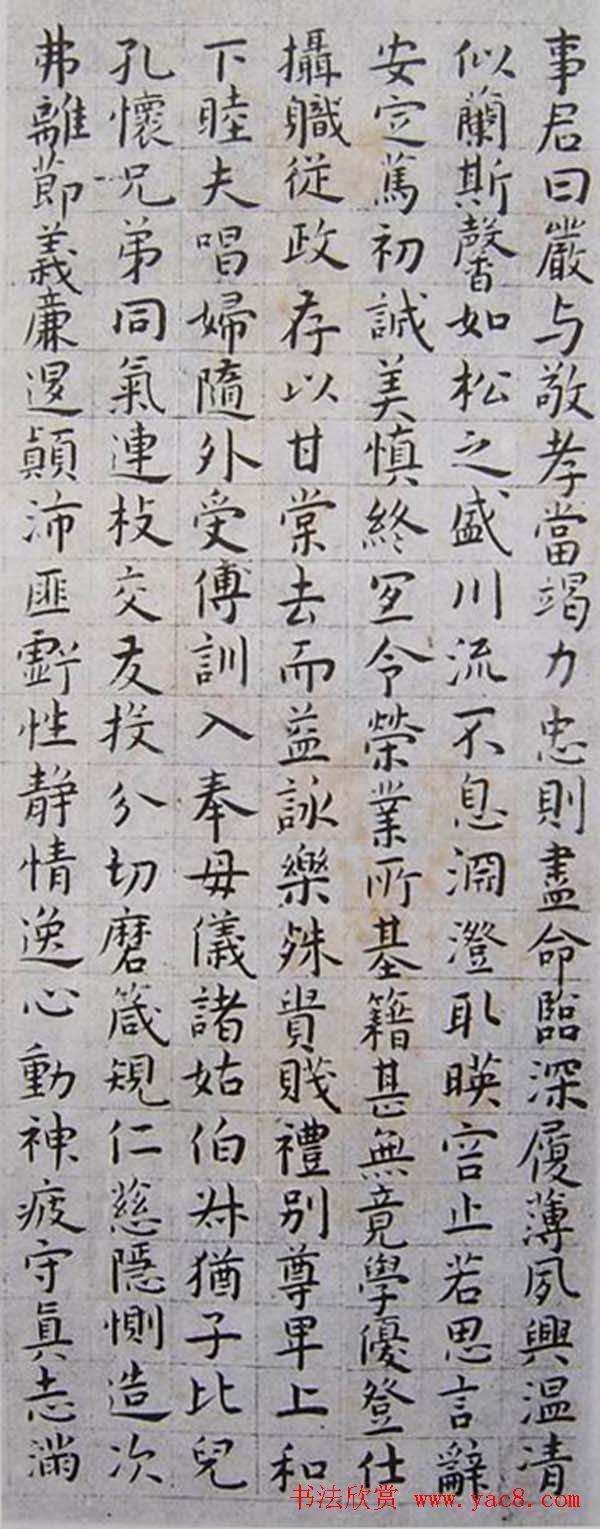 事君曰嚴与敬孝當竭力忠則盡命臨深履薄夙興温凊
似蘭斯馨如松之盛川流不息渊澄取暎容止若思言辭
安定篤初誠美慎終宜令榮業所基籍甚無竟學優登仕
攝職從政存以甘棠去而益詠樂殊貴賤禮別尊卑上和
下睦夫唱婦隨外受傅訓入奉母儀諸姑伯叔猶子比兒
孔懷兄弟同氣連枝交友投分切磨箴規仁慈隱惻造次
弗離節義廉退顛沛匪虧性静情逸心動神疲守真志滿
书法欣赏 www.yac8.com